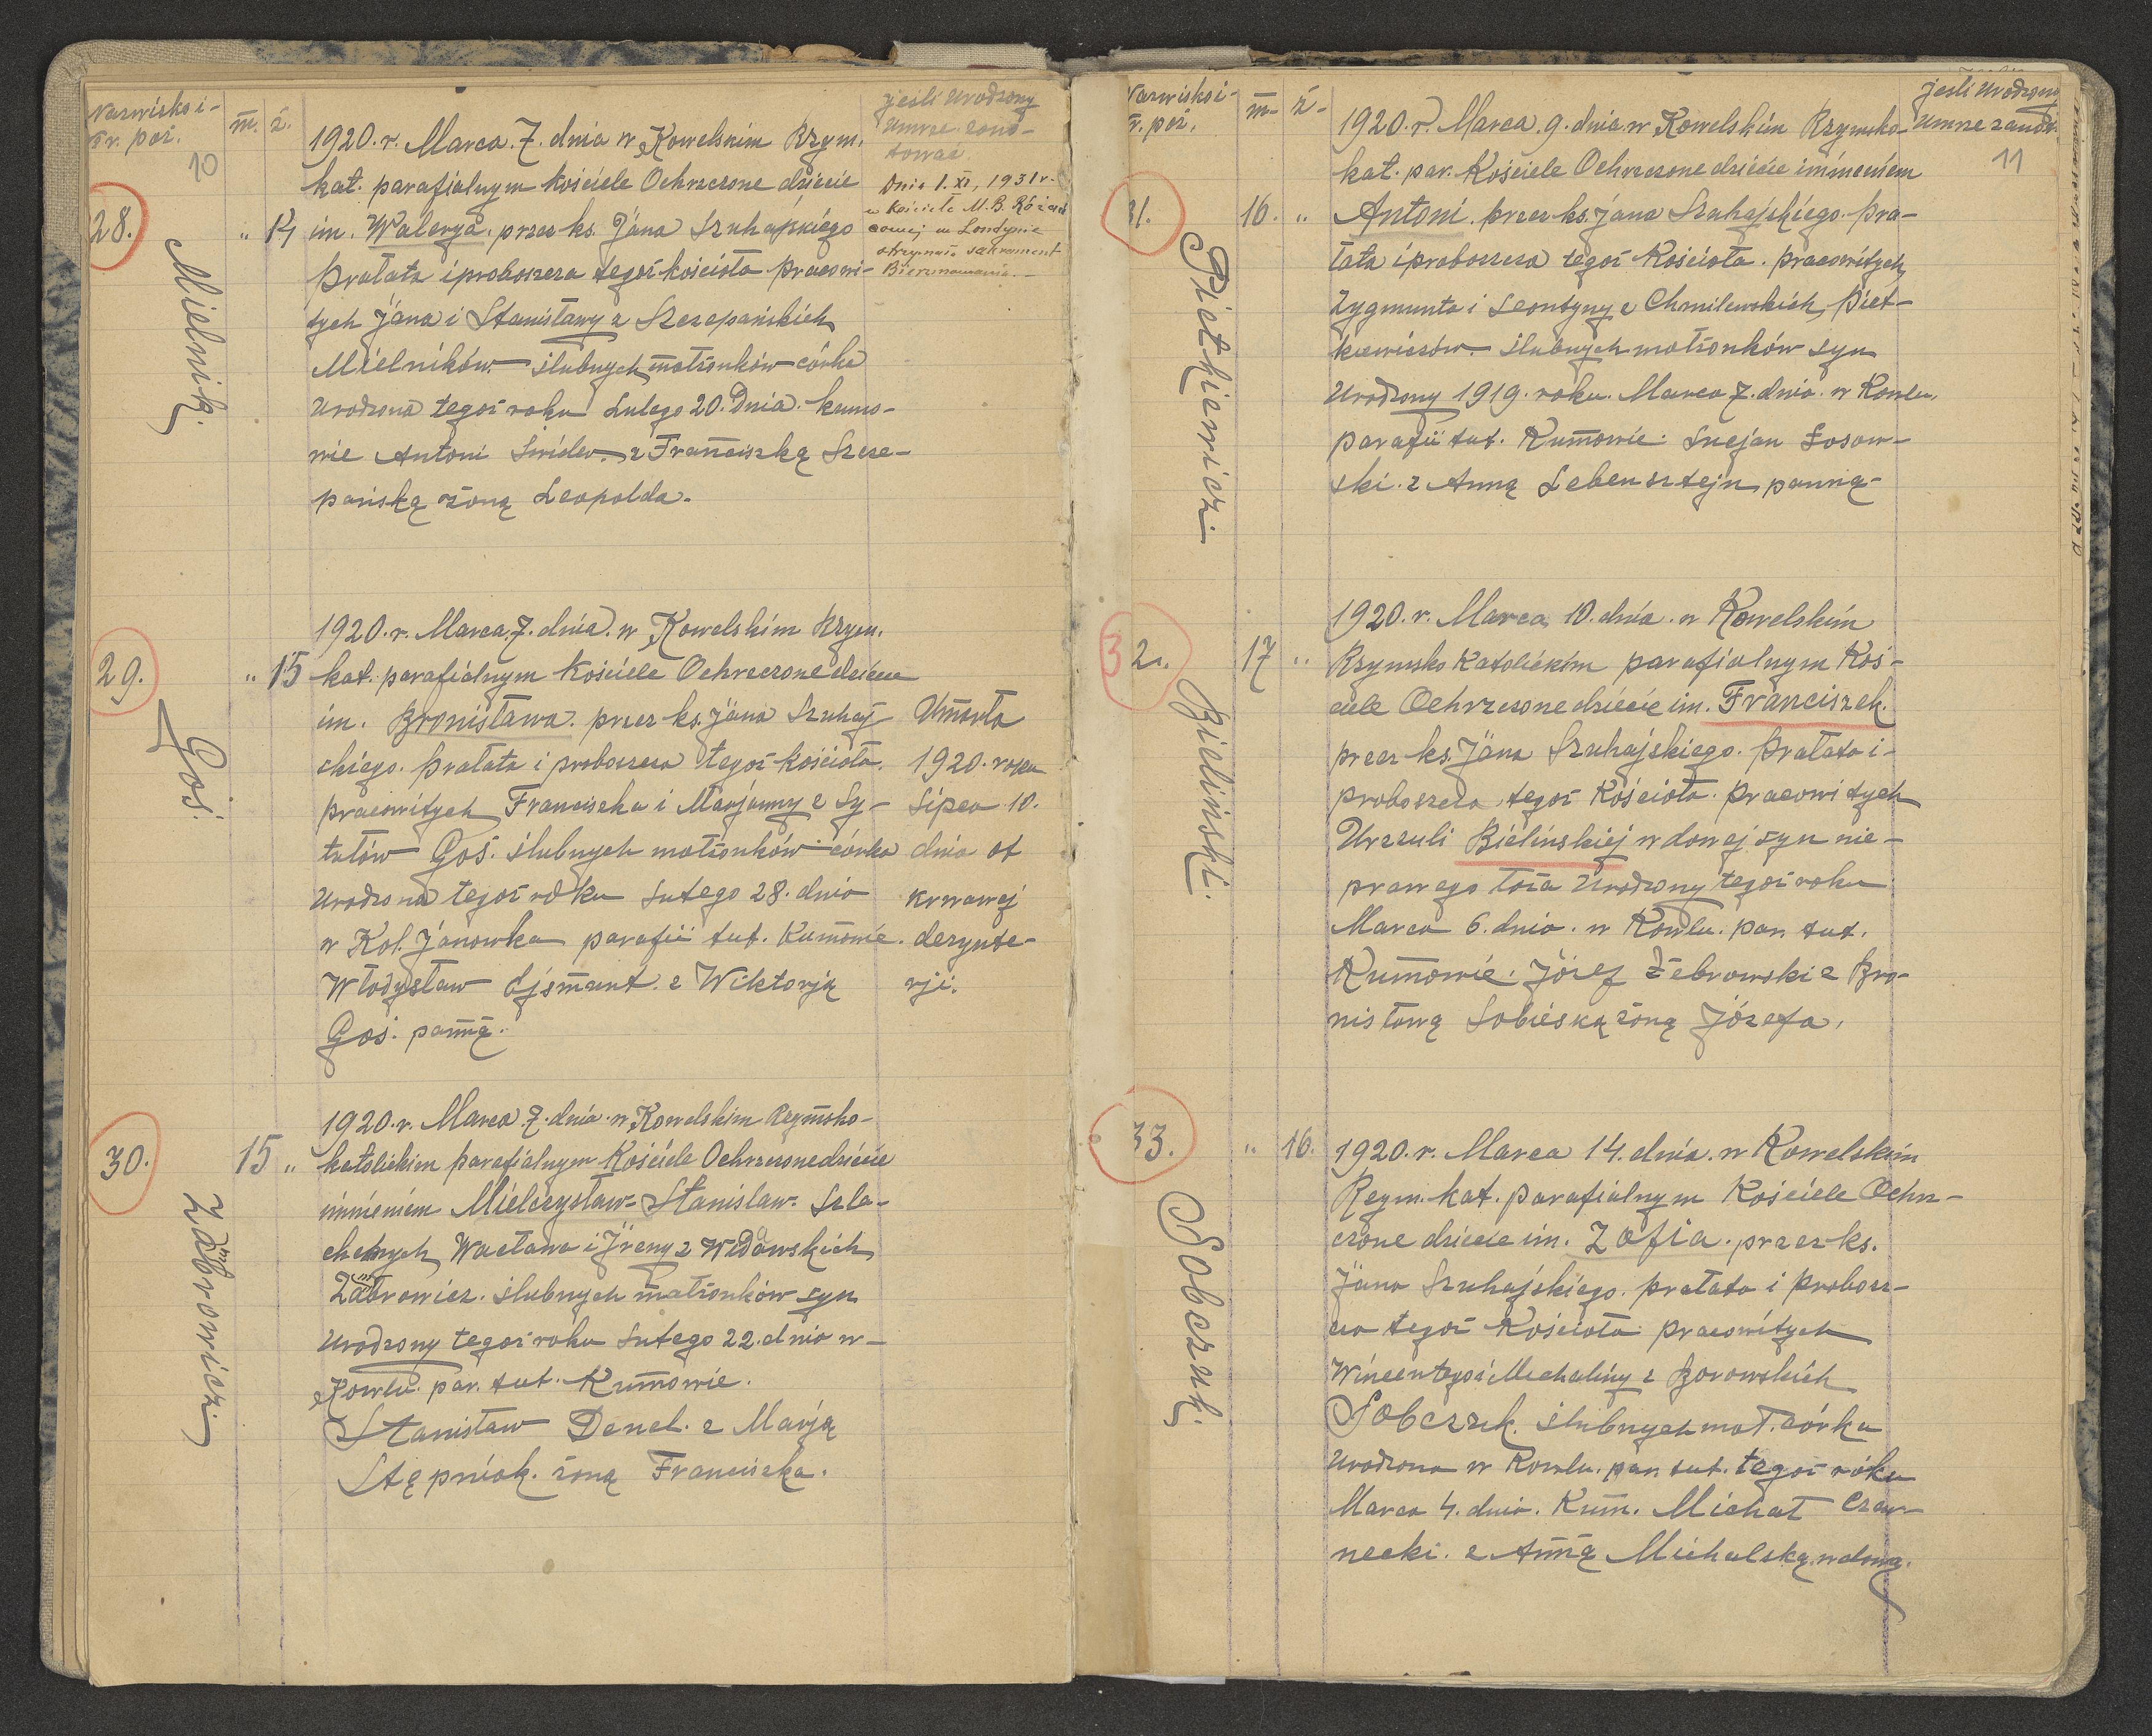 Nazwisko i-
Nr. poż.
m. ż.
jeśli urodzony
umrze. zano-
tować.
10
1920. r. Marca. 7. dnia w Kowelskim Rzym.
kat. parafialnym kościele Ochrzczone dziecie
28.
" 14
im. Walerya. przez ks. Jana Szuhajskiego
Prałata i proboszcza tegoż kościoła pracowi-
tych Jana i Stanisławy z Szczepańskich
Mielników. ślubnych małżonków córka
urodzona tegoż roku Lutego 20. Dnia. kumo-
wie Antoni z Franciszką Szcze-
pańską żoną Leopolda.
Mielnik.
Dnia 1. XI, 1931 r.
w kościele M.B. Różań
cowej w Londynie
otrzymała sakrament
Bierzmowania.
1920. r. Marca. 7. dnia. w Kowelskim Rzym.
29.
" 15
kat. parafialnym kościele Ochrzczone dziecie
im. Bronisława. przez ks. Jana Szuhaj-
skiego. prałata i proboszcza tegoż kościoła.
pracowitych Franciszka i Marjanny z Sy-
tutów Goś. ślubnych małżonków córka
urodzona tegoż roku Lutego 28. dnia
w Kol. Janowka parafii tut. Kumowie.
Władysław Ojsmunt. z Wiktorją
Goś. panną.
Goś.
Umarła
1920. roku
Lipca 10.
dnia od
krwawej
dezynte-
rji.
1920. r. Marca 7. dnia. w Kowelskim Rzymsko-
30.
15 "
katolickim parafialnym Kościele Ochrzczone dziecie
imieniem Mielczysław-Stanislaw. szla-
chetnych Wacława i Jreny z Widawskich
Zambrowicz. ślubnych małżonków syn
urodzony tegoż roku Lutego 22. dnia w-
Kowlu. par. tut. Kumowie.
Stanisław Denel. z Marją
Stępniak. żoną Franciszka.
Zambrowicz.
Nazwisko i-
Nr. poż.
m- ż-
jeśli urodzony
umrze zanot.
11
1920. r. Marca. 9. dnia. w Kowelskim Rzymsko-
kat. par. Kościele Ochrzczone dziecie imieniem
31.
16. "
Antoni. przez ks. Jana Szuhajskiego. pra-
łata i proboszcza tegoż Kościoła. pracowitych
Zygmunta i Leontyny z Chmilewskich Piet-
kiewiczów. ślubnych małżonków syn
urodzony 1919. roku. Marca 7. dnia. w Kowlu.
parafii tut. Kumowie: Łosow-
ski. z Anną Lebensztejn panną-
Pietkiewicz.
1920. r. Marca 10. dnia. w Kowelskim
32.
17 "
Rzymsko Katolickim parafialnym Koś-
ciele Ochrzczone dziecie im. Franciszek.
przez ks. Jana Szuhajskiego. Prałata i-
proboszcza tegoż Kościoła. pracowitych
Urszuli Bielinskiej wdowej syn nie-
prawego łoża urodzony tegoż roku
Marca 6. dnia. w Kowlu. par. tut.
Kumowie: Józef Żebrowski z Bro-
nisławą Sobieską żoną Józefa.
Bielinski.
33.
" 16.
1920. r. Marca 14. dnia. w Kowelskim
Rzym. kat. parafialnym Kościele Ochrz-
czone dziecie im. Zofia. przez ks.
Jana Szuhajskiego. prałata i probosz-
cza tegoż Kościoła pracowitych
Wincentego i Michaliny z Borowskich
Sobczuk. ślubnych mał. córka
urodzona w Kowlu. par. tut. tegoż roku
Marca 4. dnia. Kum. Michał Czar-
necki. z Anną Michalską wdową.
Sobczuk.